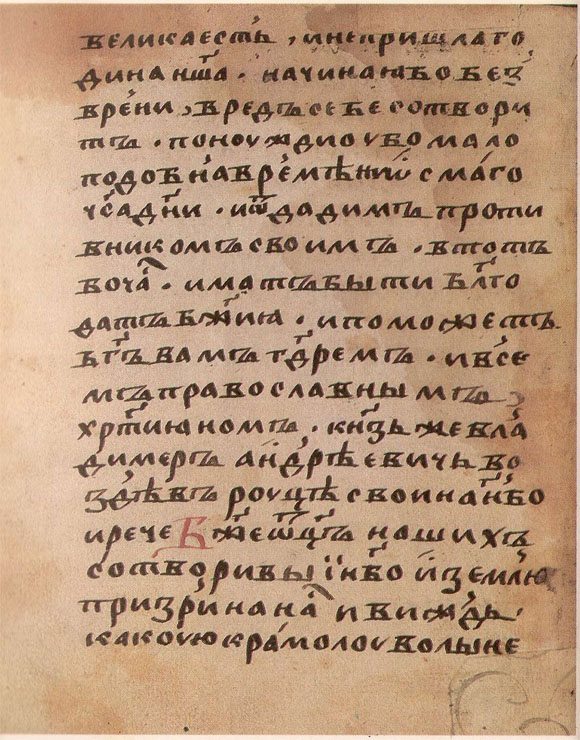 велика естъ, и не пришла го
дина нша҃. начинаю бо без
времени, вредъ себе сотвори
тъ. поноуждиоубо мало
подобна времѣни ѿ смаго
чс҃а дн҃и. и ѿдадимъ проти
вникомъ своимъ. в тотъ
бо ча҃. иматъ быти бл҃го
датъ бж҃ия. и поможетъ
бг҃ъ вамъ гд҃ремъ. и всѣ
мъ православнымъ
хр҃тияномъ. кн҃зь же вла
димеръ андрѣевичь во
здѣвъ роуцѣ свои на нб҃о
и рече Бж҃е ѿц҃ъ нашихъ
сотворивы і нб҃о и землю
призри на на҃ и виждь.
какоую крамолоу волыне